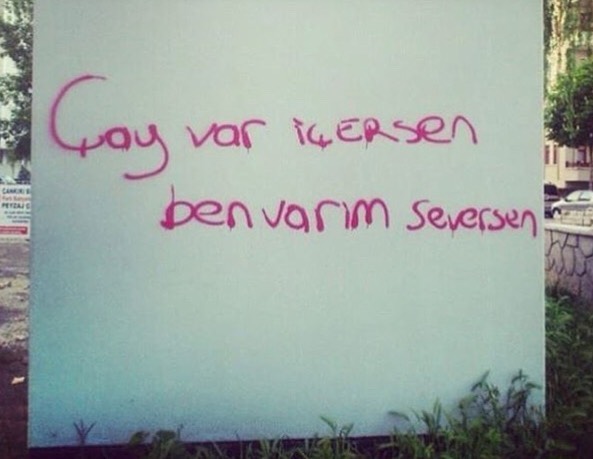 Çay var içERsen
ben varım seversen
ÇANKIRI B
PEYZAJ Ç